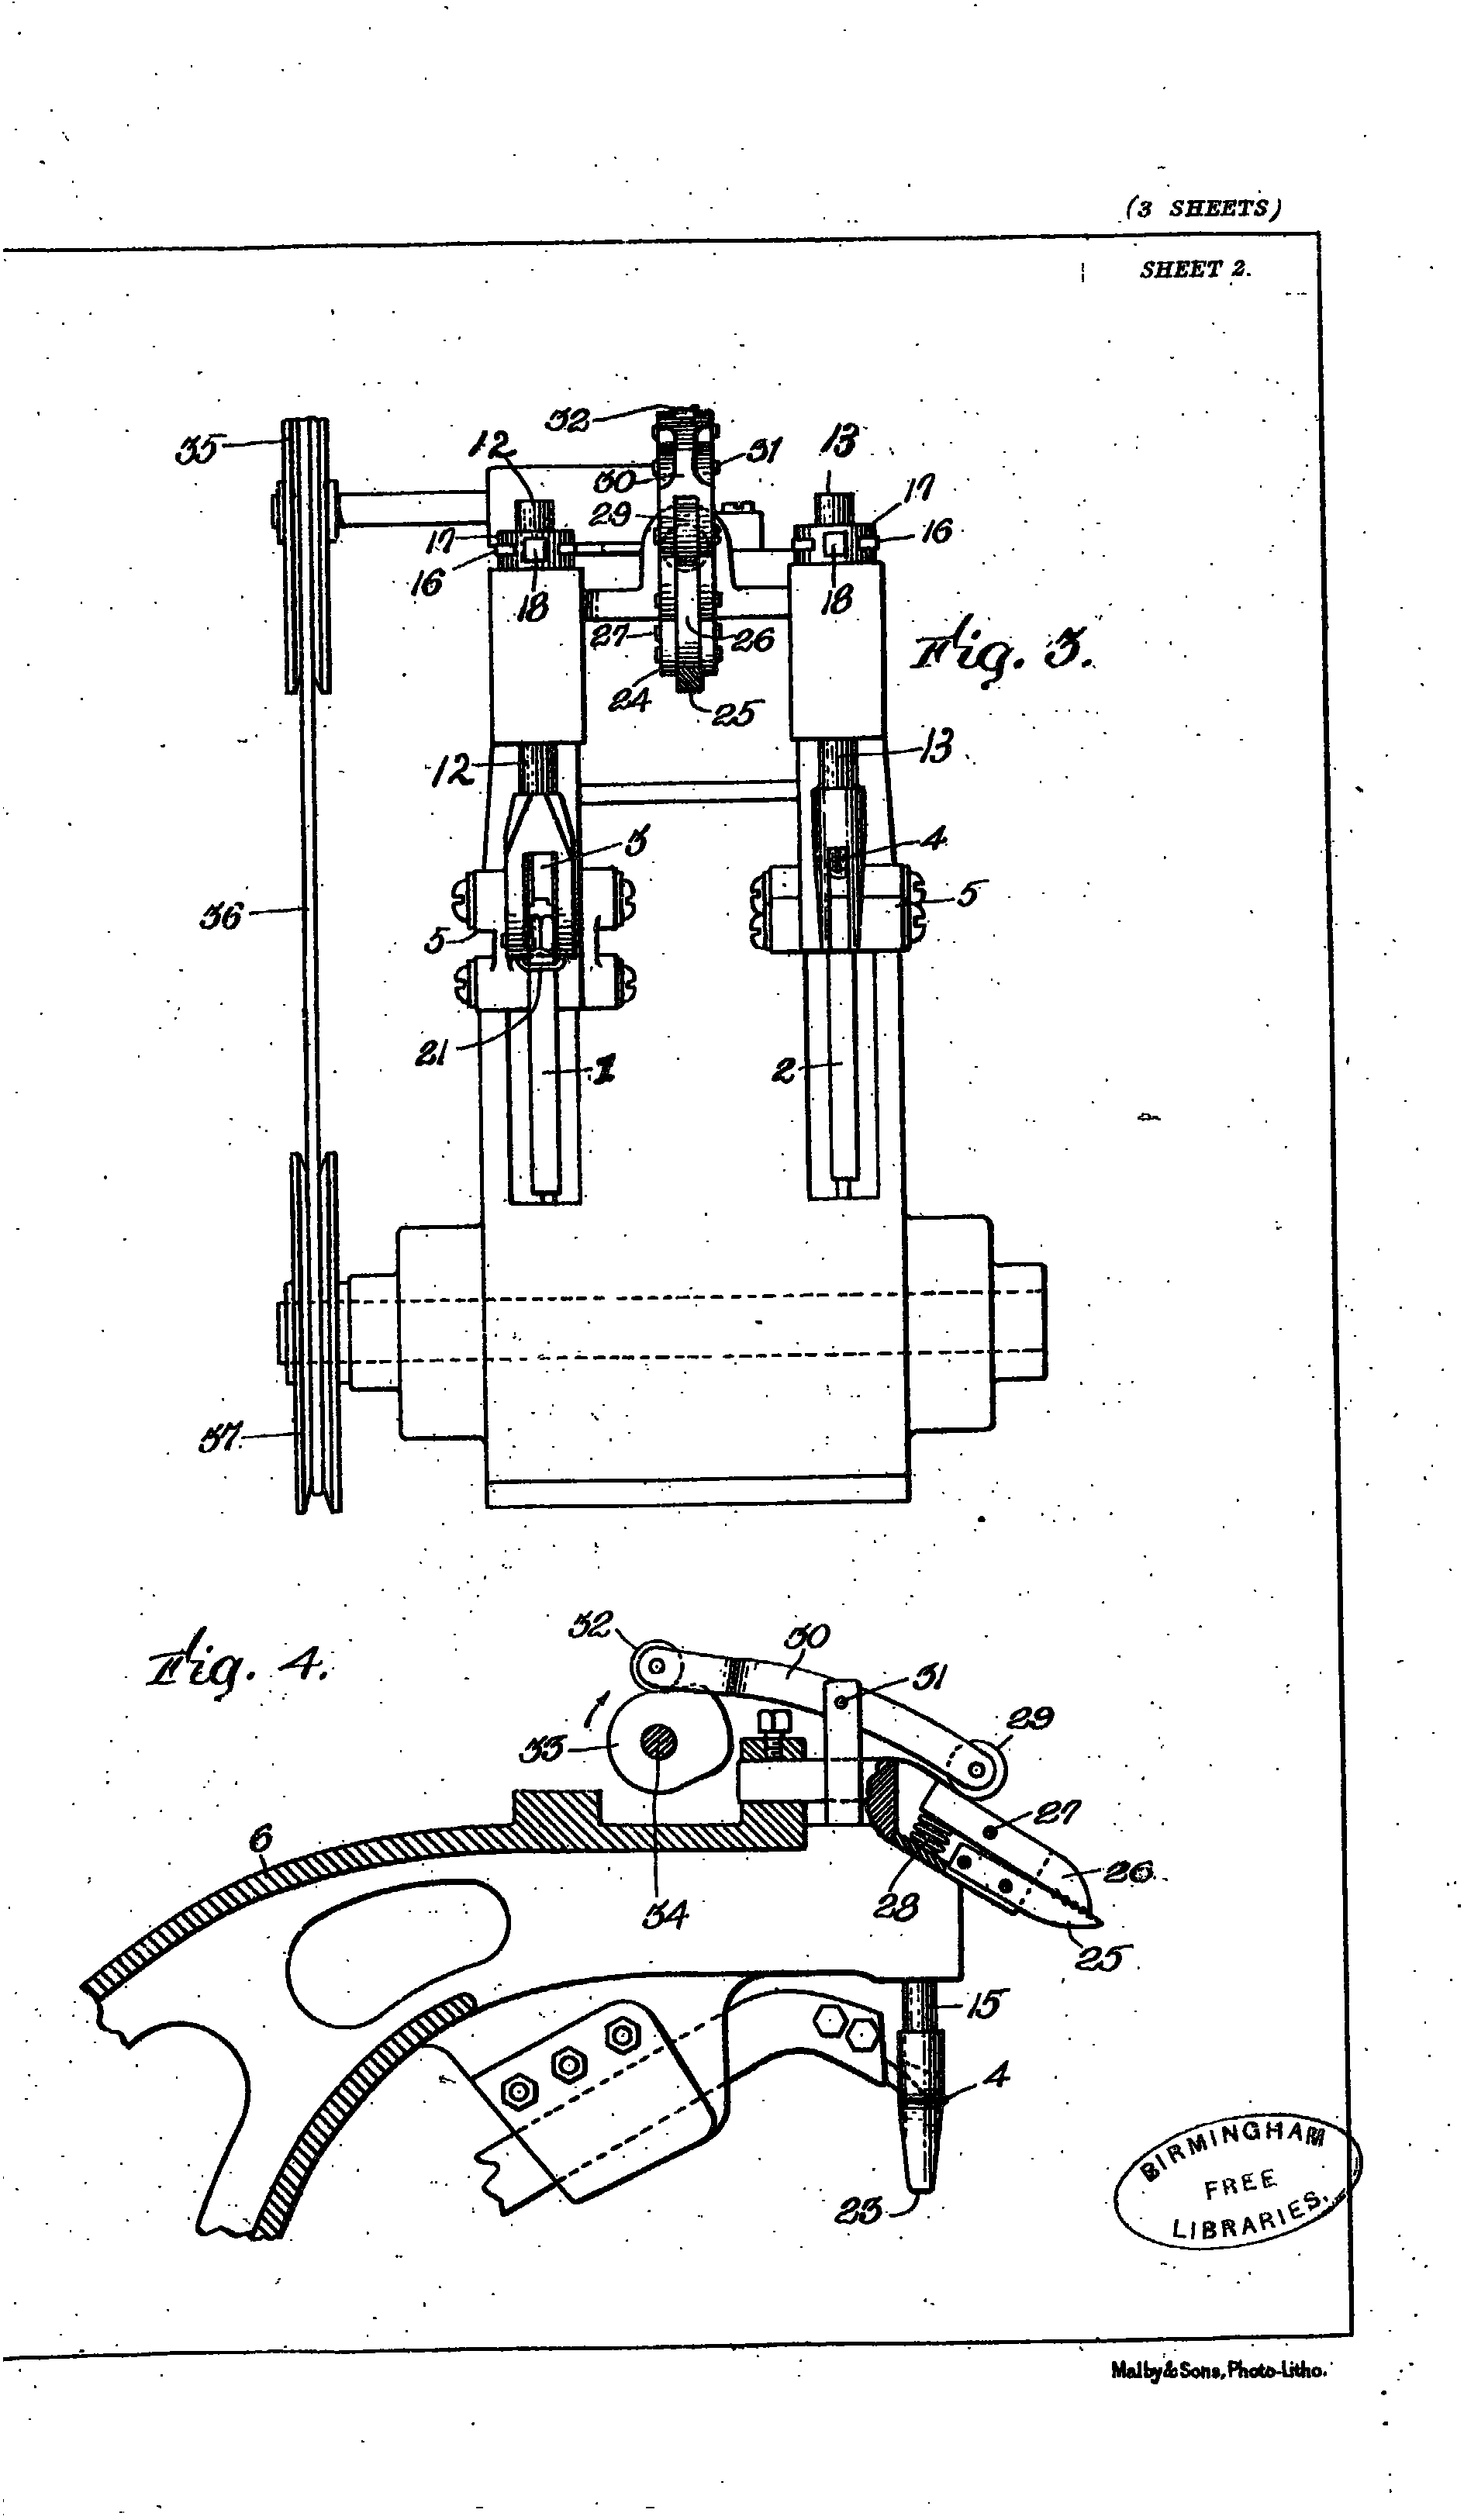 (3 SHEETS)
SHEET 2.
32
35
12
13
31
30
17
29
17
16
16
18
18
27
26
Fig. 3.
24
25
12
13
3
4
5
36
5
21
1
2
37
Fig. 4.
32
30
31
29
33
27
6
26
28
34
25
15
4
23
BIRMINGHAM
FREE
LIBRARIES.
Malby & Sons, Photo-Litho.